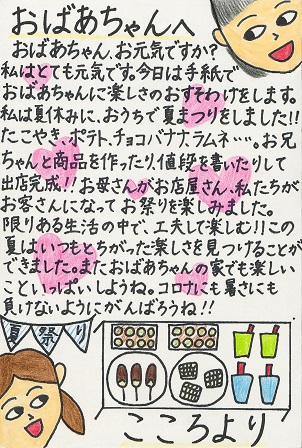 おばあちゃんへ
おばあちゃん、お元気ですか?
私はとても元気です。今日は手紙で
おばあちゃんに楽しさのおすそわけをします。
私は夏休みに、おうちで夏まつりをしました!!
たこやき、ポテト、チョコバナナ、ラムネ…。お兄
ちゃんと商品を作ったり、値段を書いたりして
出店完成!!お母さんがお店屋さん、私たちが
お客さんになってお祭りを楽しみました。
限りある生活の中で、工夫して楽しむ!!この
夏はいつもとちがった楽しさを見つけることが
できました。またおばあちゃんの家でも楽しい
こといっぱいしようね。コロナにも暑さにも
負けないようにがんばろうね!!
夏祭り
こころより